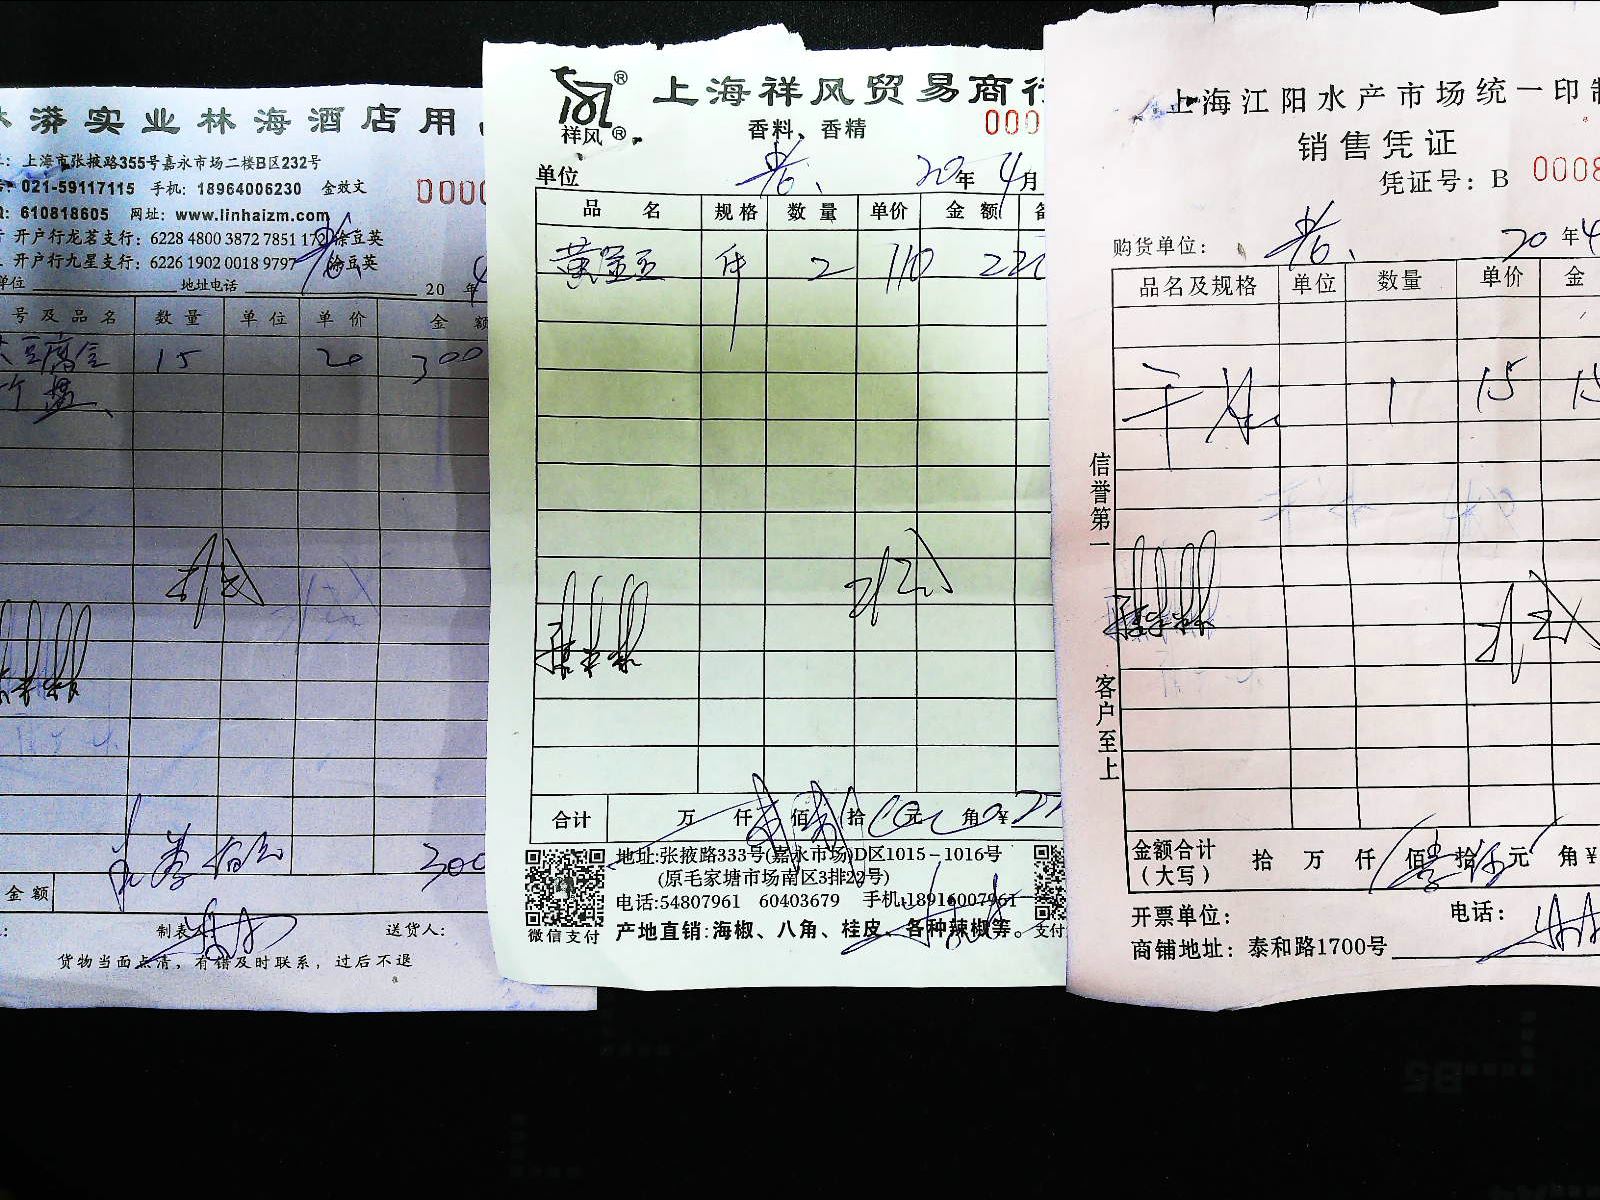 漭实业林海酒店用
：上海市张掖路355号嘉永市场二楼B区232号
：021-59117115 手机：18964006230 金效文
：610818605 网址：www.linhaizm.com
开户行龙茗支行：6228 4800 3872 7851 172 徐豆英
开户行九星支行：6226 1902 0018 9797 徐豆英
单位 地址电话 20 年4
号及品名 数量 单位 单价 金额
豆腐盒 15 20 300
竹盘
叁佰元 300
金额
制表人： 送货人：
货物当面点清，有错及时联系，过后不退
祥风
上海祥风贸易商行
香料、香精
000
单位 20年4月
品名 规格 数量 单价 金额 备
黄金豆 件 2 110 220
合计 万 仟 佰 拾 元 角 ¥
地址:张掖路333号(嘉永市场)D区1015-1016号
(原毛家塘市场南区3排22号)
电话:54807961 60403679 手机:18916007961
微信支付 产地直销:海椒、八角、桂皮、各种辣椒等。 支付
上海江阳水产市场统一印制
销售凭证
凭证号：B 0008
购货单位： 20年4
品名及规格 单位 数量 单价 金
1 15 15
信誉第一
客户至上
金额合计（大写） 拾 万 仟 佰 拾 元 角 ¥
开票单位： 电话：
商铺地址：泰和路1700号